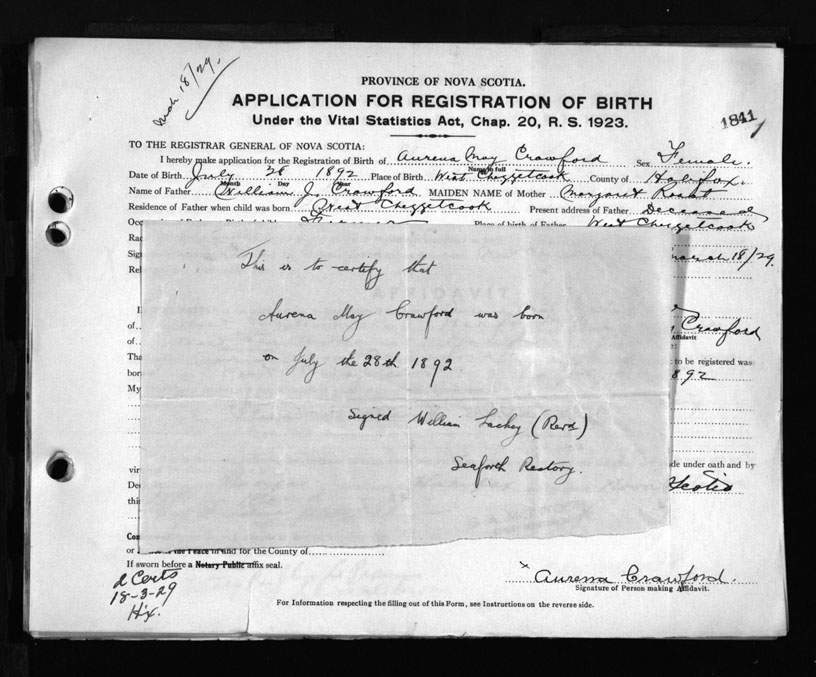 March 18/29.
PROVINCE OF NOVA SCOTIA.
APPLICATION FOR REGISTRATION OF BIRTH
Under the Vital Statistics Act, Chap. 20, R. S. 1923.
1841
TO THE REGISTRAR GENERAL OF NOVA SCOTIA:
I hereby make application for the Registration of Birth of Aurena May Crawford Sex Female.
Name in full
Date of Birth July 28 1892 Place of Birth West Chezzetcook County of Halifax.
Month Day Year
Name of Father William J. Crawford MAIDEN NAME of Mother Margaret
Residence of Father when child was born West Chezzetcook Present address of Father Deceased
Farmer Place of birth of Father West Chezzetcook
Rac
Sig March 18/29.
Rel
This is to certify that
AFFIDAVIT
Aurena May Crawford was born
on July the 28th 1892
Signed William Lackey (Revd)
Seaforth Rectory.
I
of
Crawford
Affidavit
of
Tha to be registered was
bor 1892
My
vir de under oath and by
De Scotia
this
Co
or Peace in and for the County of
If sworn before a Notary Public affix seal.
2 Certs
18-3-29
Hx.
x Aurena Crawford.
Signature of Person making Affidavit.
For Information respecting the filling out of this Form, see Instructions on the reverse side.